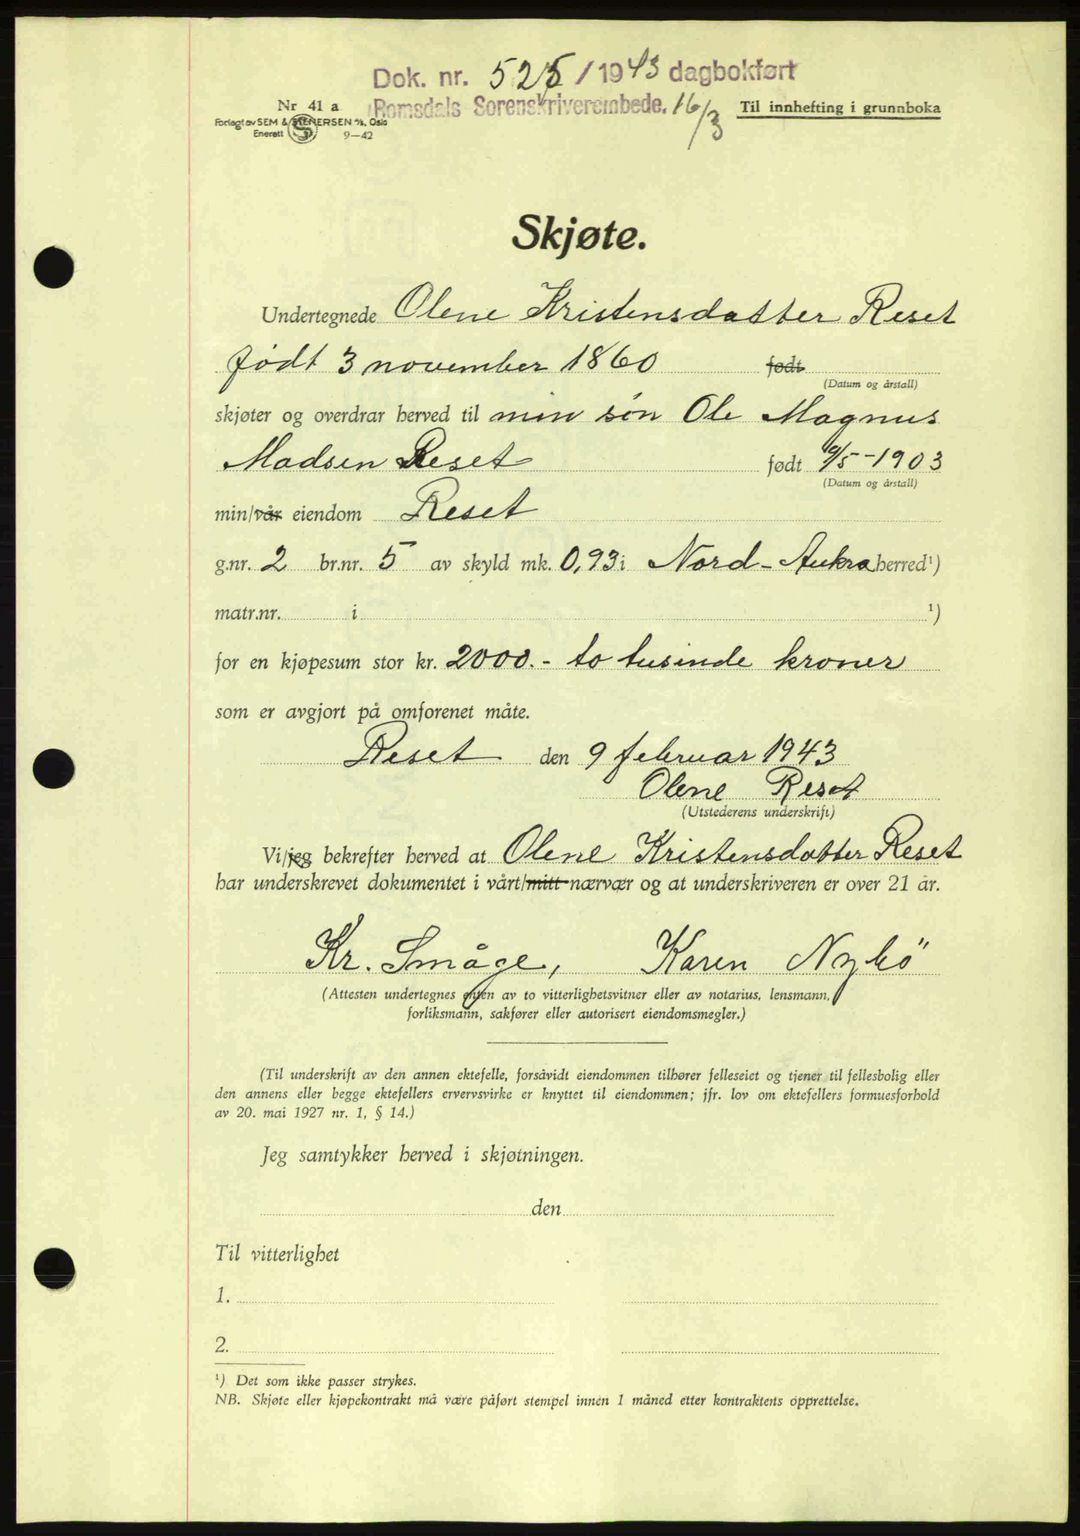 Dok. nr. 525/1943 dagbokført
Romsdals Sorenskriverembede. 16/3
Nr 41 a
Forlagt av SEM & STENERSEN A/S, Oslo
Enerett 9—42
Til innhefting i grunnboka
Skjøte.
Undertegnede Olene Kristensdatter Reset
født 3 november 1860 født
(Datum og årstall)
skjøter og overdrar herved til min søn Ole Magnus
Madsen Reset født 9/5-1903
(Datum og årstall)
min/vår eiendom Reset
g.nr. 2 br.nr. 5 av skyld mk. 0,93 i Nord-Aukra herred¹)
matr.nr. i ¹)
for en kjøpesum stor kr. 2000.- to tusinde kroner
som er avgjort på omforenet måte.
Reset den 9 februar 1943
Olene Reset
(Utstederens underskrift)
Vi/jeg bekrefter herved at Olene Kristensdatter Reset
har underskrevet dokumentet i vårt/mitt nærvær og at underskriveren er over 21 år.
Kr. Småge, Karen Nybö
(Attesten undertegnes enten av to vitterlighetsvitner eller av notarius, lensmann,
forliksmann, sakfører eller autorisert eiendomsmegler.)
(Til underskrift av den annen ektefelle, forsåvidt eiendommen tilhører felleseiet og tjener til fellesbolig eller
den annens eller begge ektefellers ervervsvirke er knyttet til eiendommen; jfr. lov om ektefellers formuesforhold
av 20. mai 1927 nr. 1, § 14.)
Jeg samtykker herved i skjøtningen.
den
Til vitterlighet
1.
2.
¹) Det som ikke passer strykes.
NB. Skjøte eller kjøpekontrakt må være påført stempel innen 1 måned etter kontraktens opprettelse.